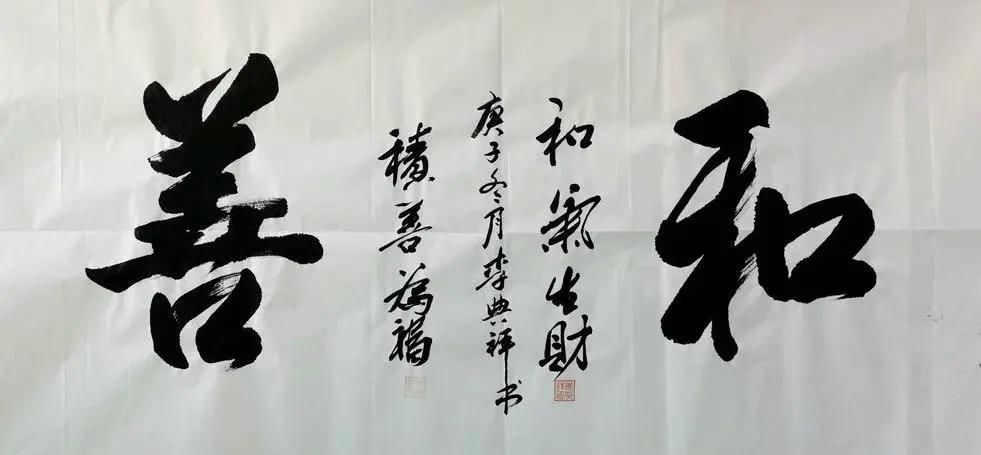 和
和氣生財
庚子冬月李典祥书
積善為福
善